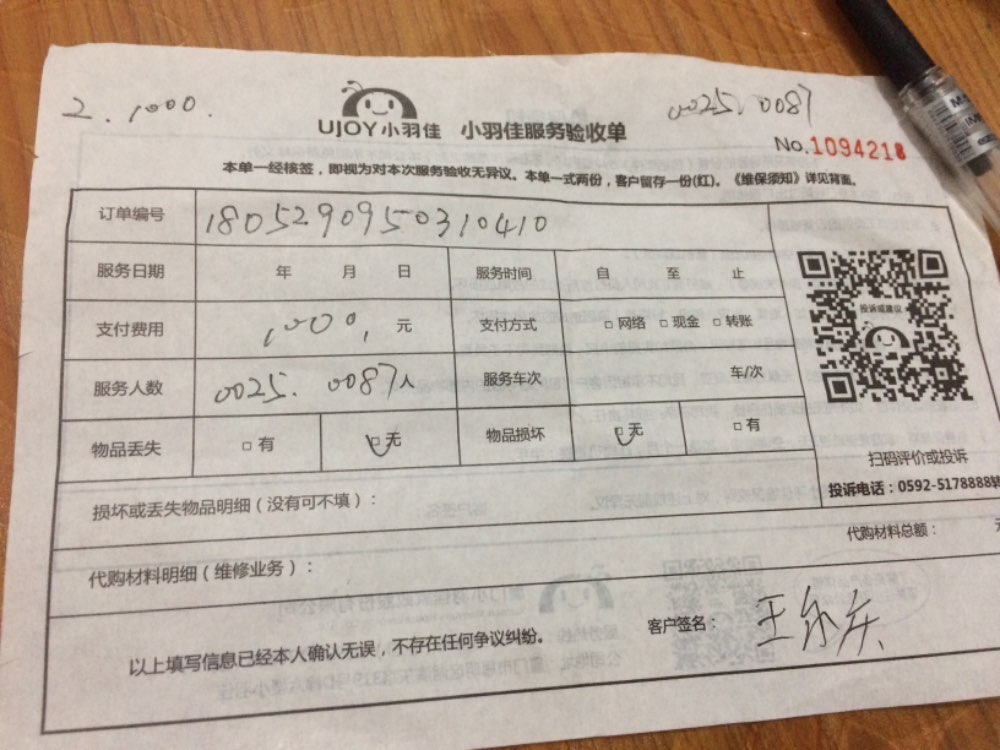 2. 1000.
0025. 0087
UJOY小羽佳 小羽佳服务验收单
No.1094218
本单一经核签，即视为对本次服务验收无异议。本单一式两份，客户留存一份(红)。《维保须知》详见背面。
订单编号 1805290950310410
服务日期 年 月 日 服务时间 自 至 止
支付费用 1000. 元 支付方式 □网络 □现金 □转账
服务人数 0025. 0087人 服务车次 车/次
物品丢失 □有 □无 物品损坏 □无 □有
投诉或建议
扫码评价或投诉
投诉电话：0592-5178888转
损坏或丢失物品明细（没有可不填）：
代购材料总额：
代购材料明细（维修业务）：
客户签名：
以上填写信息已经本人确认无误，不存在任何争议纠纷。